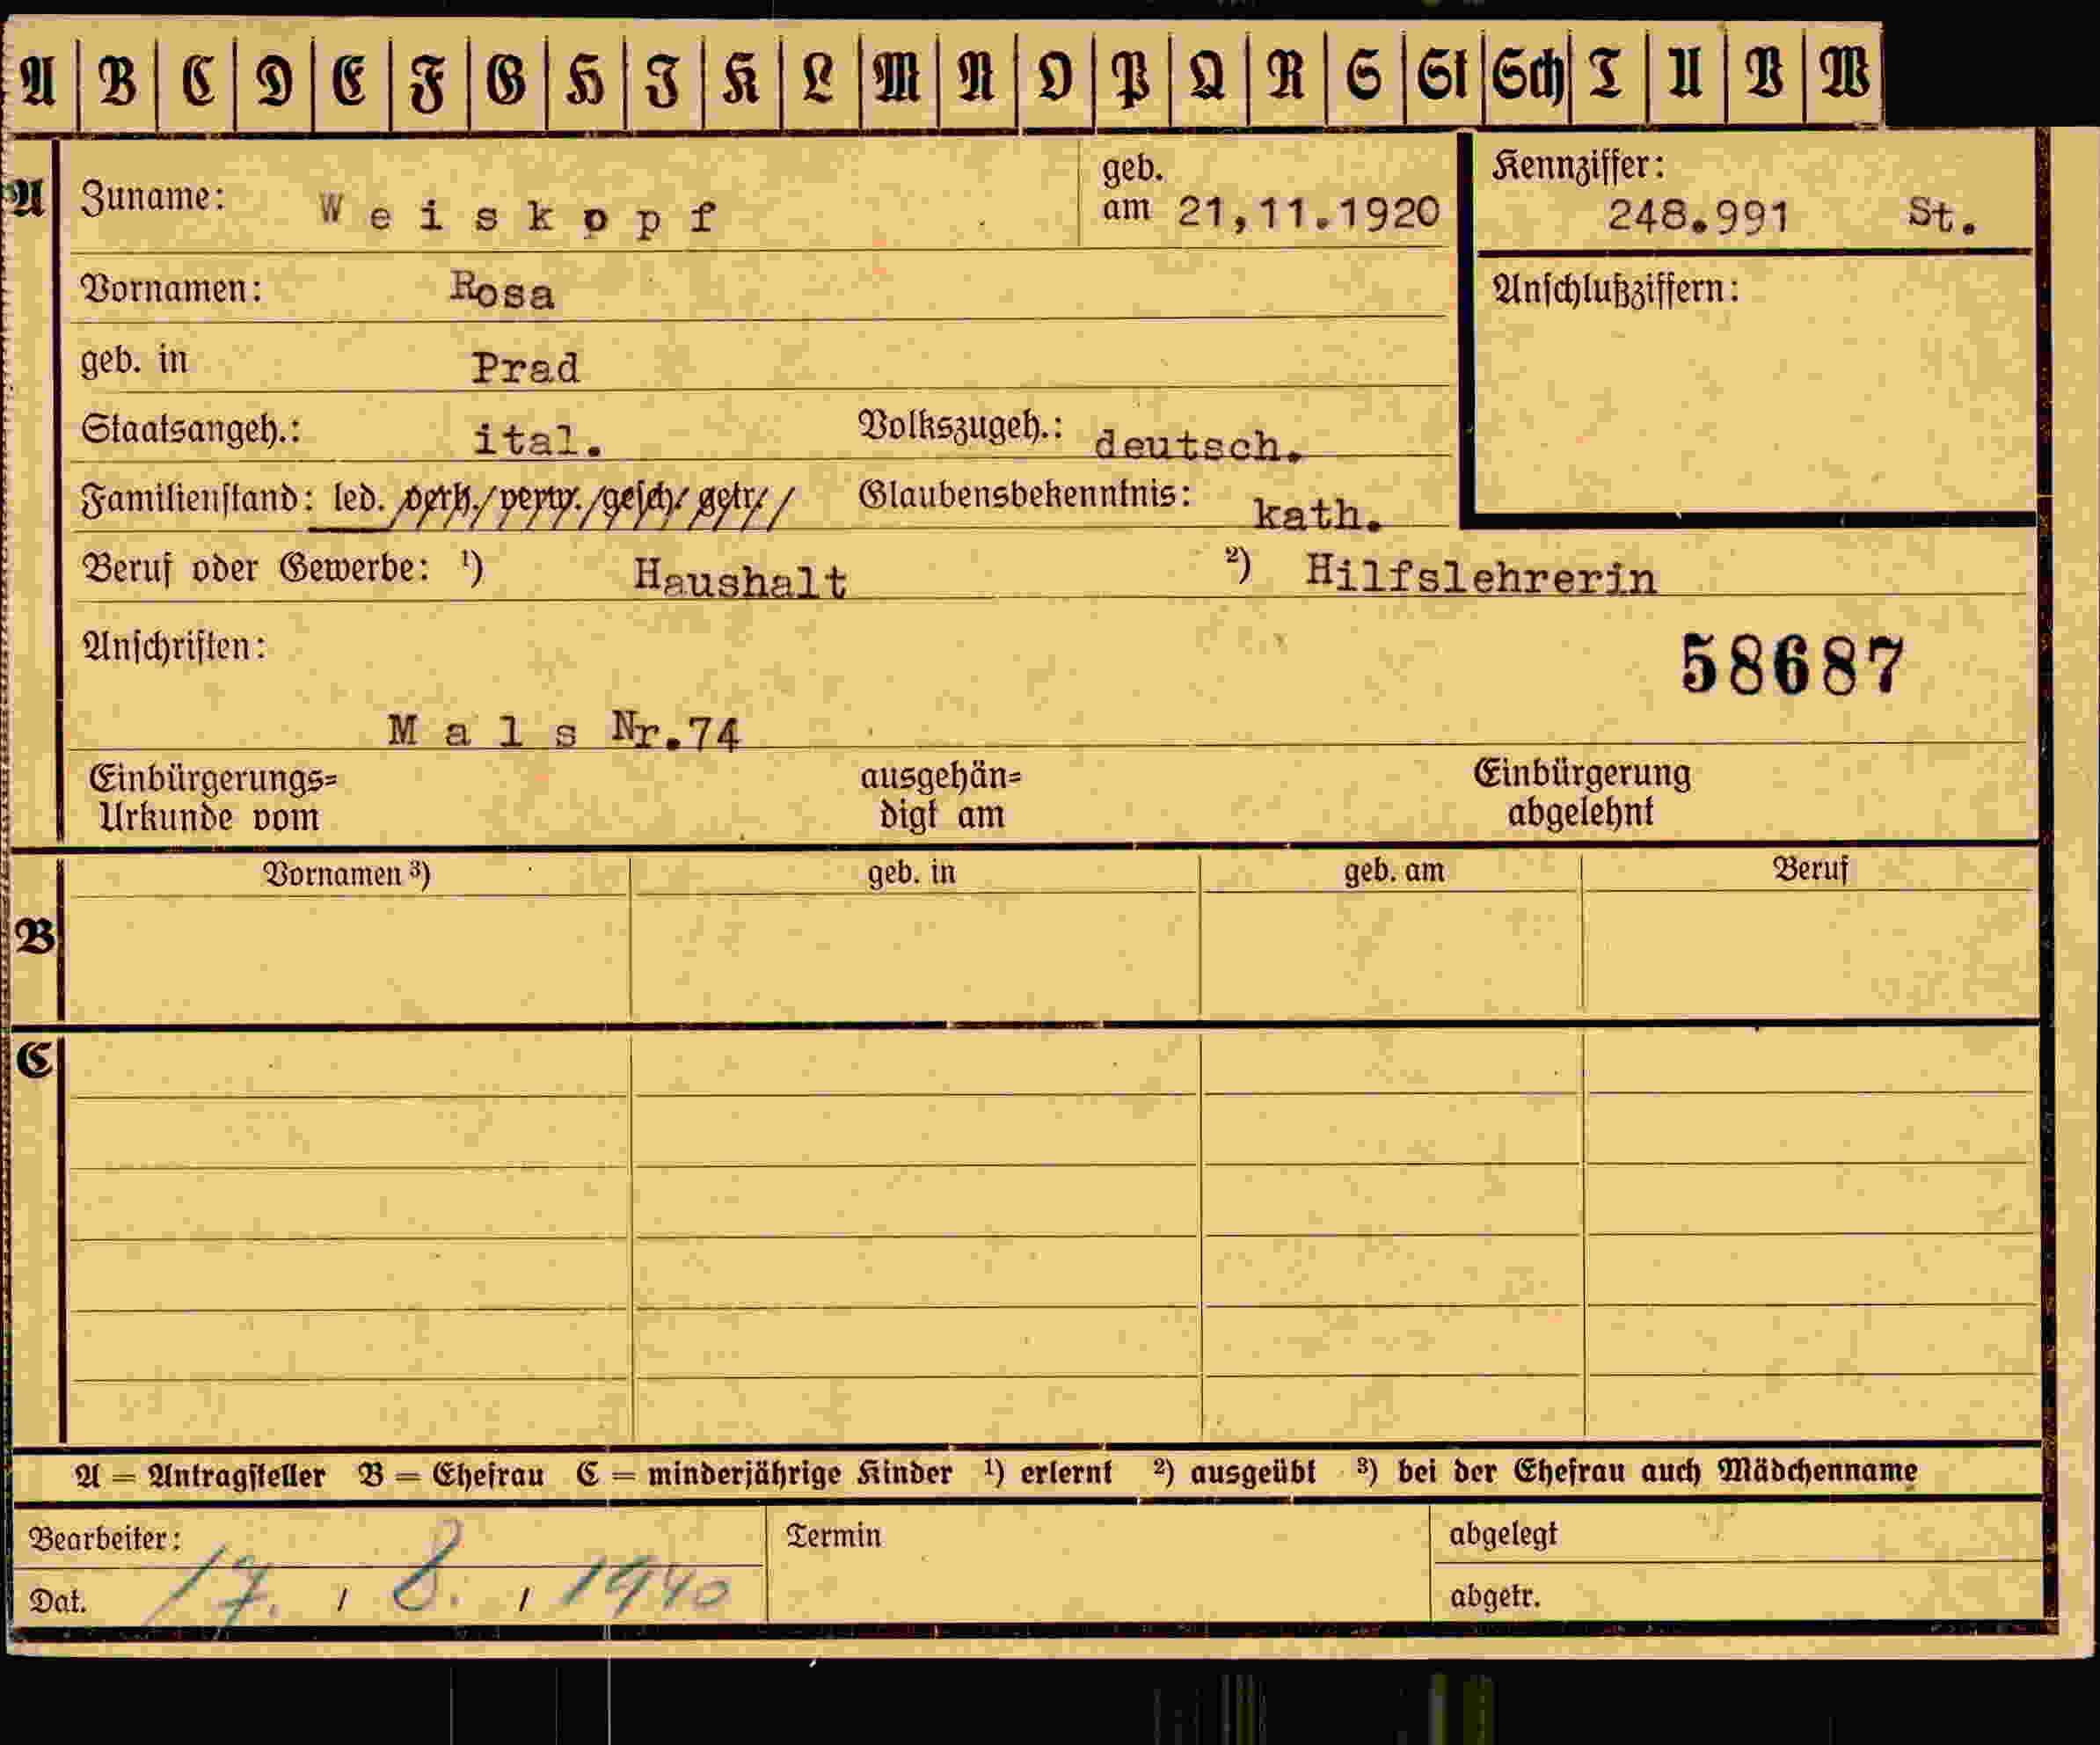 A B C D E F G H I K L M N O P Q R S St Sch T U V W
A Zuname: Weiskopf geb. am 21,11.1920 Kennziffer: 248.991 St.
Vornamen: Rosa Anschlußziffern:
geb. in Prad
Staatsangeh.: ital. Volkszugeh.: deutsch.
Familienstand: led. /verh./verw./gesch/ getr./ Glaubensbekenntnis: kath.
Beruf oder Gewerbe: ¹) Haushalt ²) Hilfslehrerin
Anschriften: 58687
Mals Nr.74
Einbürgerungs= ausgehän= Einbürgerung
Urkunde vom digt am abgelehnt
Vornamen ³) geb. in geb. am Beruf
B
C
A = Antragsteller B = Ehefrau C = minderjährige Kinder ¹) erlernt ²) ausgeübt ³) bei der Ehefrau auch Mädchenname
Bearbeiter: Termin abgelegt
Dat. 17. / 8. / 1940 abgetr.